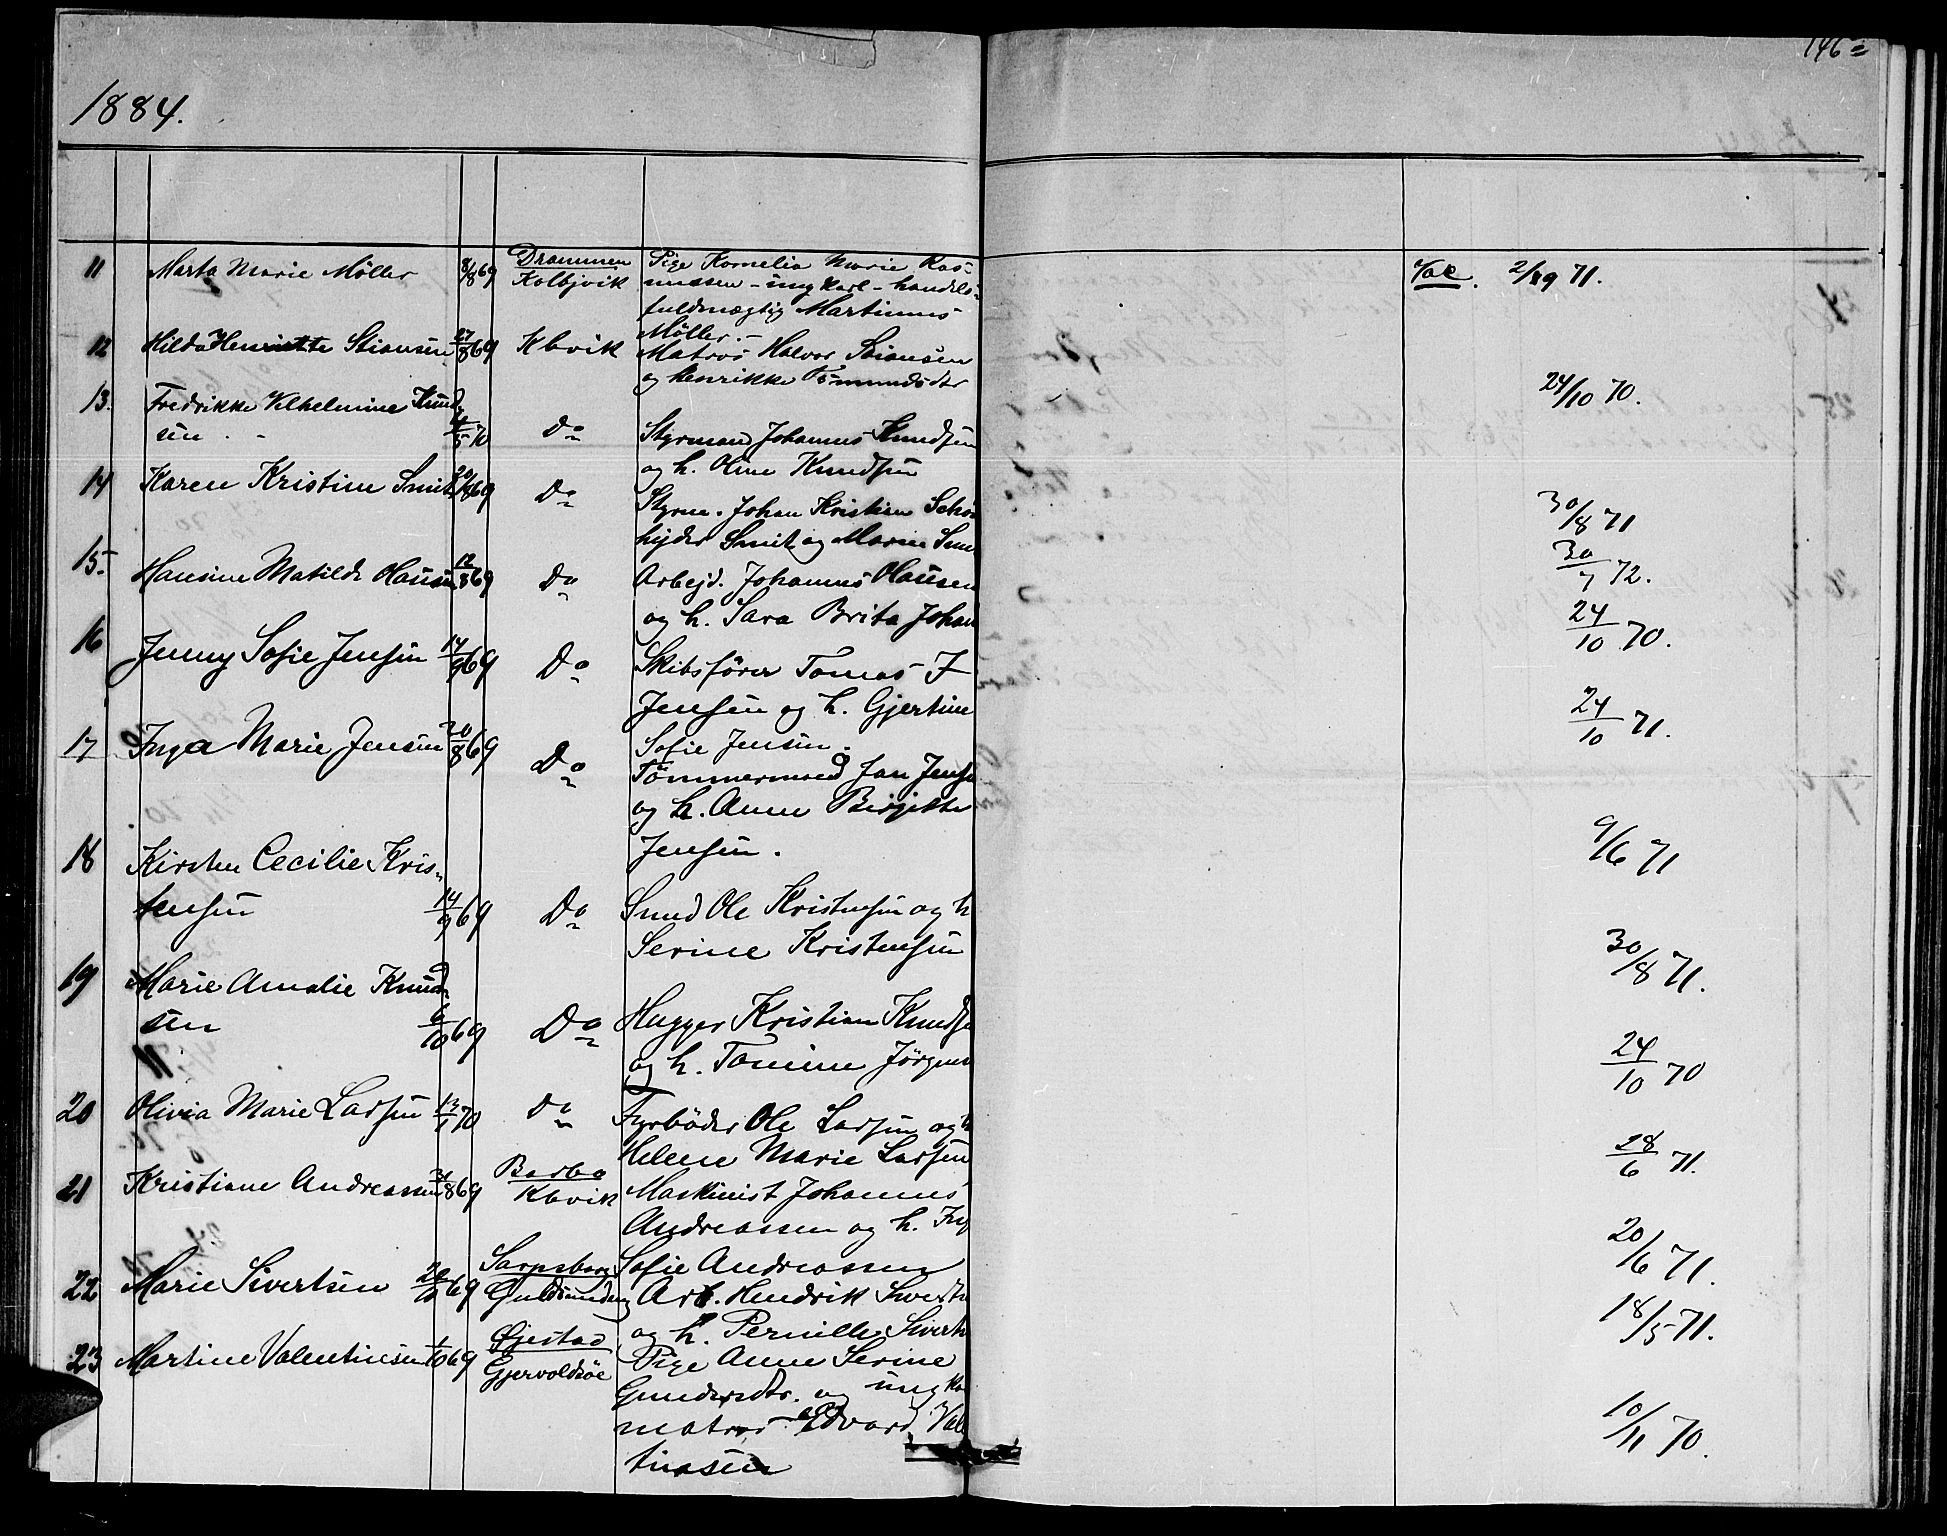 146
1884.
11 Marta Marie Möller 8/8 69 Drammen Kolbjvik Pige Kornelia Marie Ras-
mussen - ungkarl - handels-
fuldmægtig Martinus
Möller. -
Vac. 2/9 71.
12 Hilda Henriette Stiansen 27/8 69 Kbvik Matros Halvor Stiansen
og Henrikke
24/10 70.
13. Fredrikke Vilhelmine Knud
sen. - 5 70 Do Styrmand Johannes Knudsen
og h. Oline Knudsen
30/8 71
14 Karen Kristine Smit 20/8 69 Do Styrm. Johan Kristian
Smit og Marie
30/7 72.
15 Hansine Matilde Olausen 12/8 69 Do Arbejd. Johannes Olausen
og h. Sara Brita Johan
24/10 70.
16 Jenny Sofie Jensen 14/9 69 Do Skibsfører Tomas J
Jensen og h. Gjertine
Sofie Jensen.
24/10 71.
17 Inga Marie Jensen 20/8 69 Do Tömmermand Jan Jens
og h. Anne Birgitte
Jensen.
9/6 71
18 Kirsten Cecilie Kris-
tensen 14/9 69 Do Smed Ole Kristensen og h
Serine Kristensen
30/8 71.
19 Marie Amalie Knud-
sen 6/10 69 Do Hugger Kristian Knuds
og h. Tomine Jørgens
24/10 70
20 Olivia Marie Larsen 13/1 70 Do Fyrböder Ole Larsen og h
Helene Marie Larsen
28/6 71.
21 Kristiane Andreassen 31/8 69 Barbo Kbvik Maskinist Johannes
Andreassen og h. Ing
Sofie Andreassen
20/6 71.
22 Marie Sivertsen 69 Sarpsborg Arb. Hendrik Sivertse
og h. Pernille Siverts
18/5 71.
23 Martine Valentinsen 1/10 69 Øjestad Gjervoldsøe Pige Anne Serine
Gundersdtr. og ung ka
matros Edvard Val
tinsen
10/11 70.